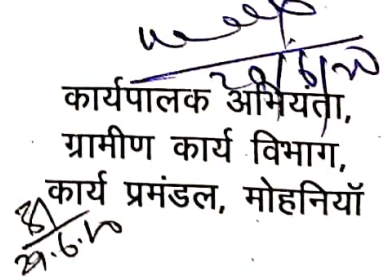 कार्यपालक अभियंता,
ग्रामीण कार्य विभाग,
कार्य प्रमंडल, मोहनियाँ
29.6.20